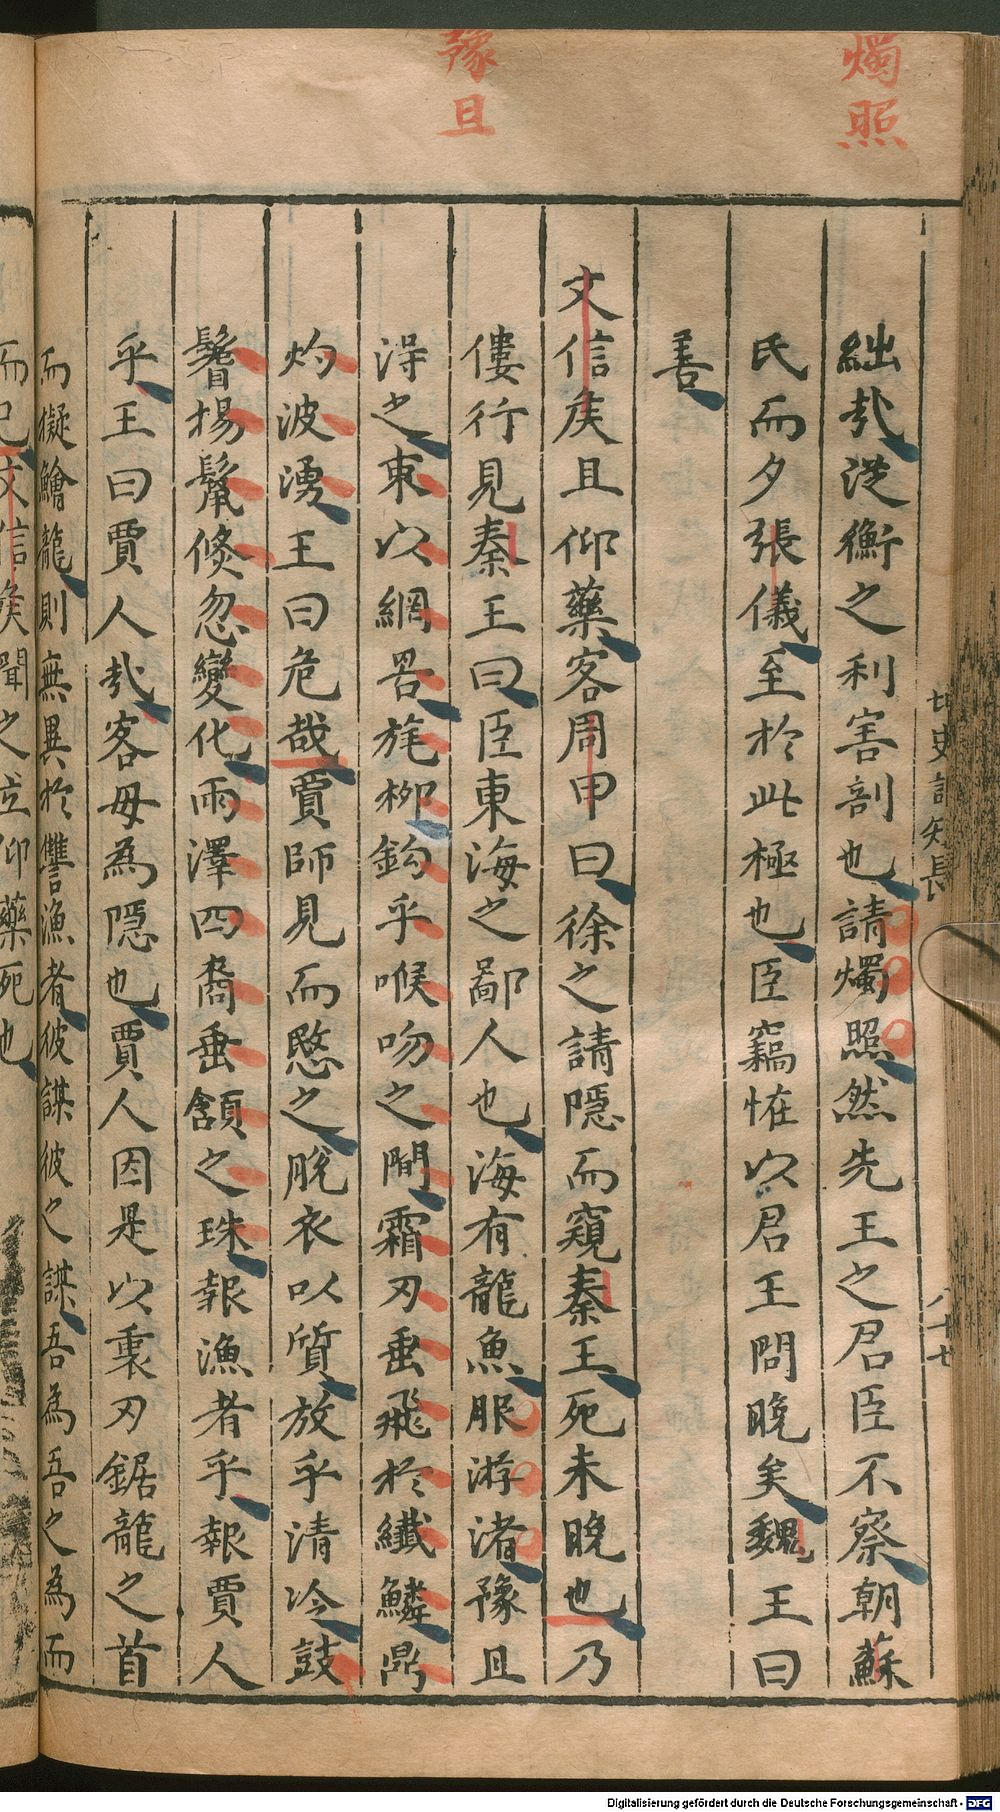 燭照
豫且
絀哉從衡之利害剖也請燭照然先王之君臣不察朝蘇
氏而夕張儀至於此極也臣竊恠以君王問晚矣魏王曰
善
文信矦且仰藥客周甲曰徐之請隱而窺秦王死未晚也乃
僂行見秦王曰臣東海之鄙人也海有龍魚服游渚豫且
淂之東以網罟旄栁鈎乎喉吻之閒霜刃垂飛於纎鱗鼎
灼波湧王曰危哉賈師見而愍之脫衣以質放乎清冷鼓
鬐揚鬣倏忽變化雨澤四裔垂頷之珠報漁者乎報賈人
乎王曰賈人哉客毋為隱也賈人因是以裹刃鋸龍之首
而擬鱠龍則無異於讐漁者彼謀彼之謀吾為吾之為而
而已文信矦聞之立仰藥死也
短長
八十七
Digitalisierung gefördert durch die Deutsche Forschungsgemeinschaft - DFG